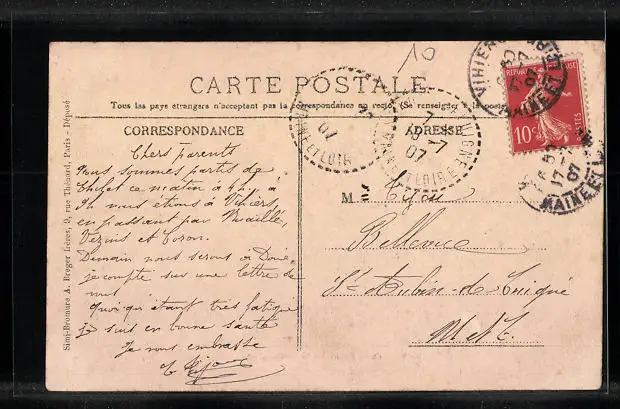 10
CARTE POSTALE
Tous les pays étrangers n'acceptent pas la correspondance au recto. (Se renseigner à la poste)
CORRESPONDANCE
ADRESSE
Chers parents
Nous sommes partis de
Cholet ce matin à 4h, à
9h nous étions à Vihiers,
en passant par Nuaillé,
Vezins et Coron.
Demain nous serons à Doué.
je compte sur une lettre de
vous
quoi qu'étant très fatigué
je suis en bonne santé
Je vous embrasse
M
Bellevue
St Aubin de Luigné
M et L
RÉPUBLIQUE FRANÇAISE
10c
POSTES
VIHIERS
MAINE ET L
07
7
07
MAINE ET LOIRE
17
07
MAINE ET L
Simi-Bromure A. Breger frères, 9, rue Thénard, Paris - Déposé